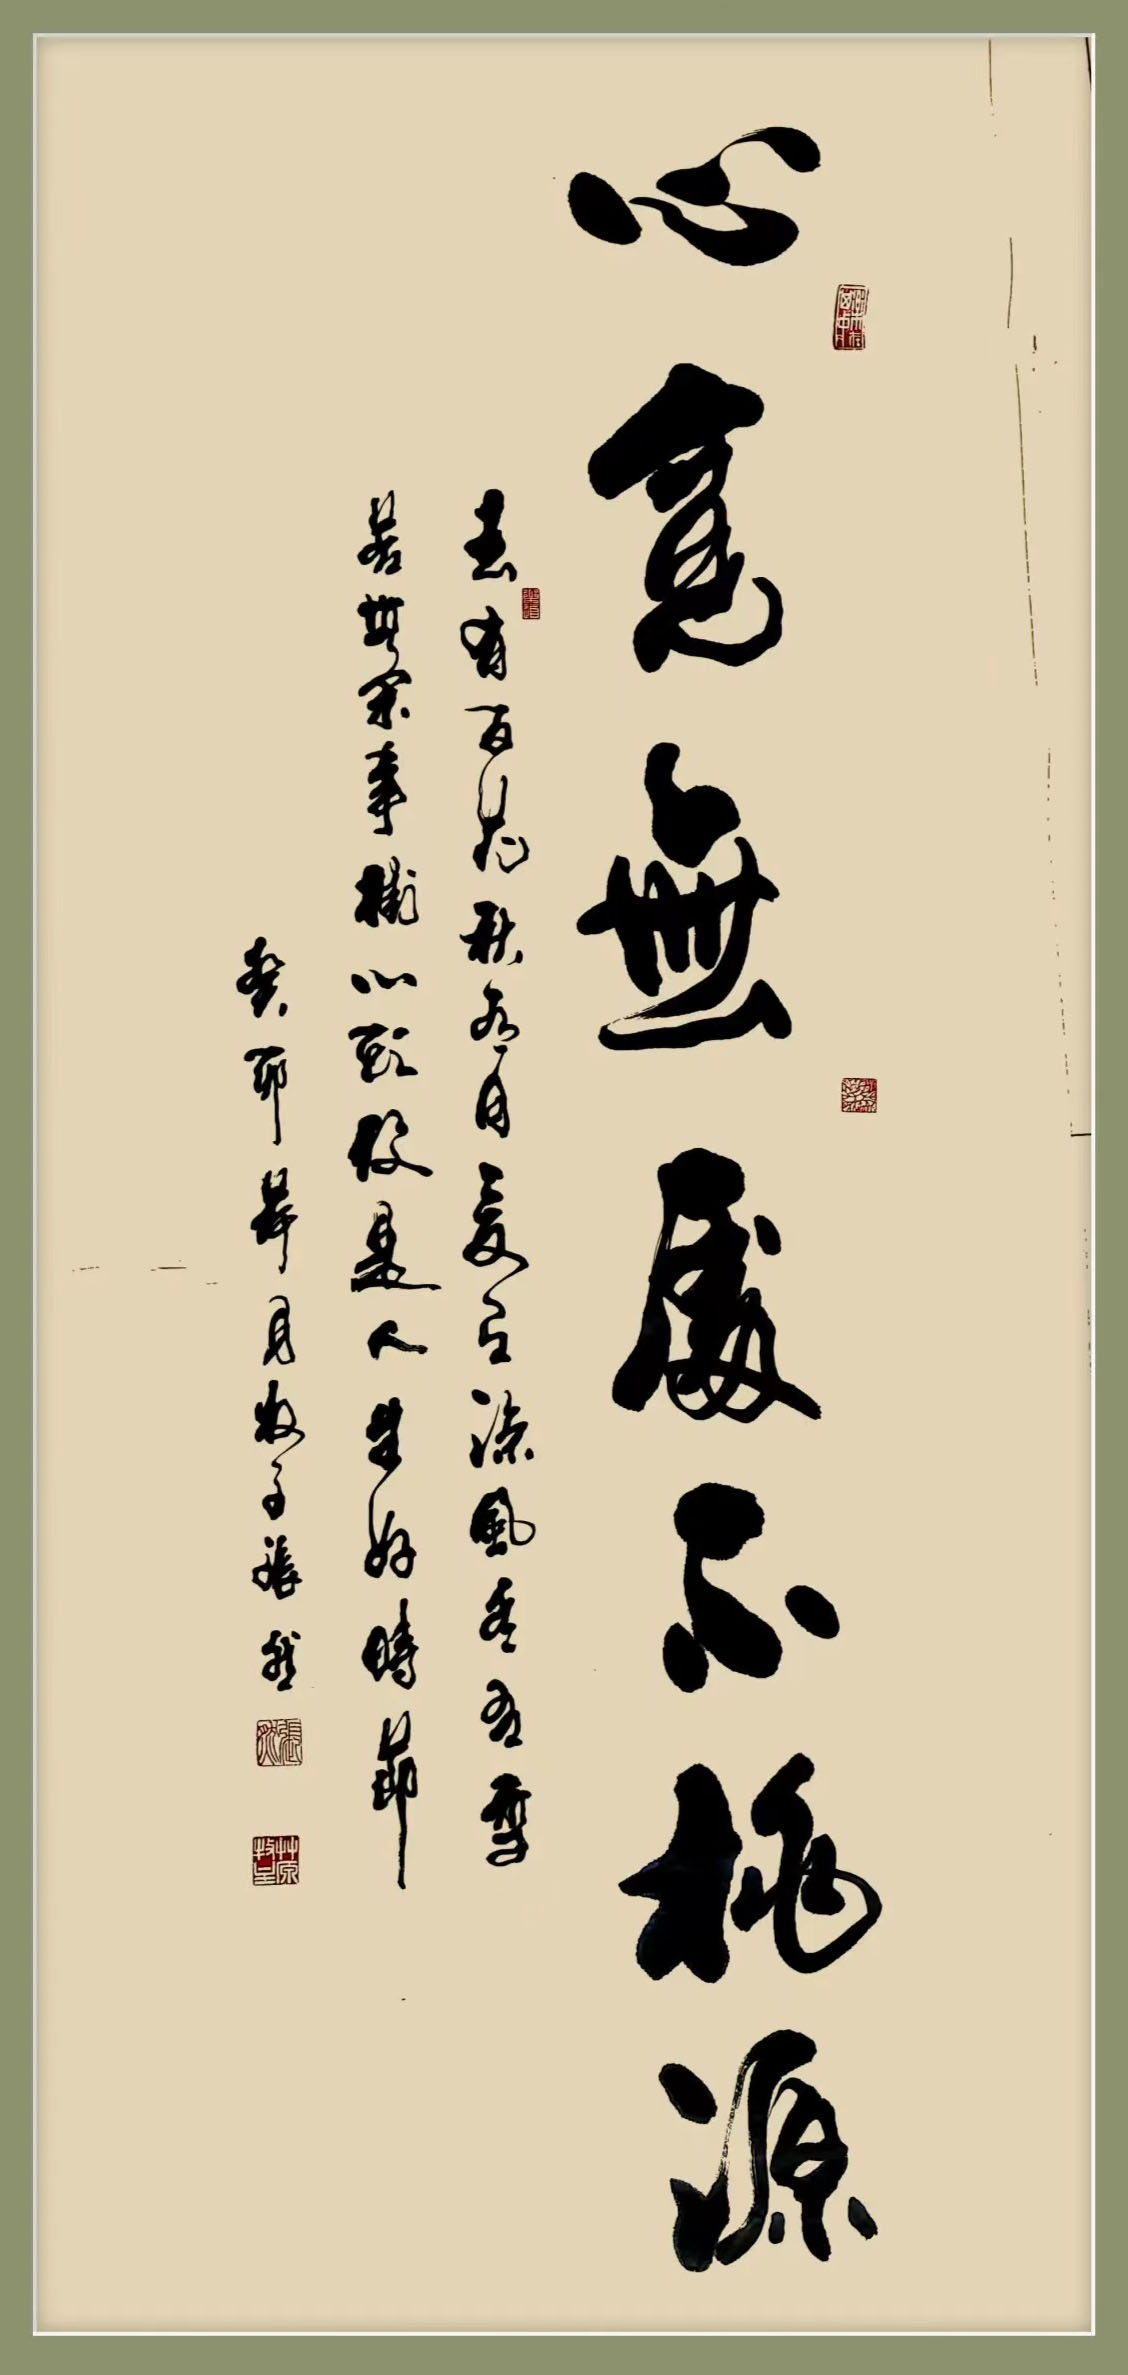 心寬無處不桃源
春有百花秋有月夏有涼風冬有雪
若無閑事掛心頭便是人生好時節
癸卯月牧子張然
張然